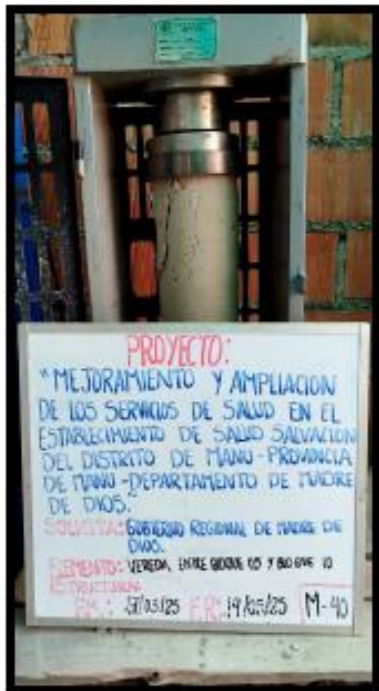 PROYECTO:
"MEJORAMIENTO Y AMPLIACION
DE LOS SERVICIOS DE SALUD EN EL
ESTABLECIMIENTO DE SALUD SALVACION
DEL DISTRITO DE MANU-PROVINCIA
DE MANU-DEPARTAMENTO DE MADRE
DE DIOS."
SOLICITA: GOBIERNO REGIONAL DE MADRE DE
DIOS.
ELEMENTO: VEREDA, ENTRE BLOQUE 05 Y BLOQUE 10
ESTRUCTURAL
F.R.: M-40